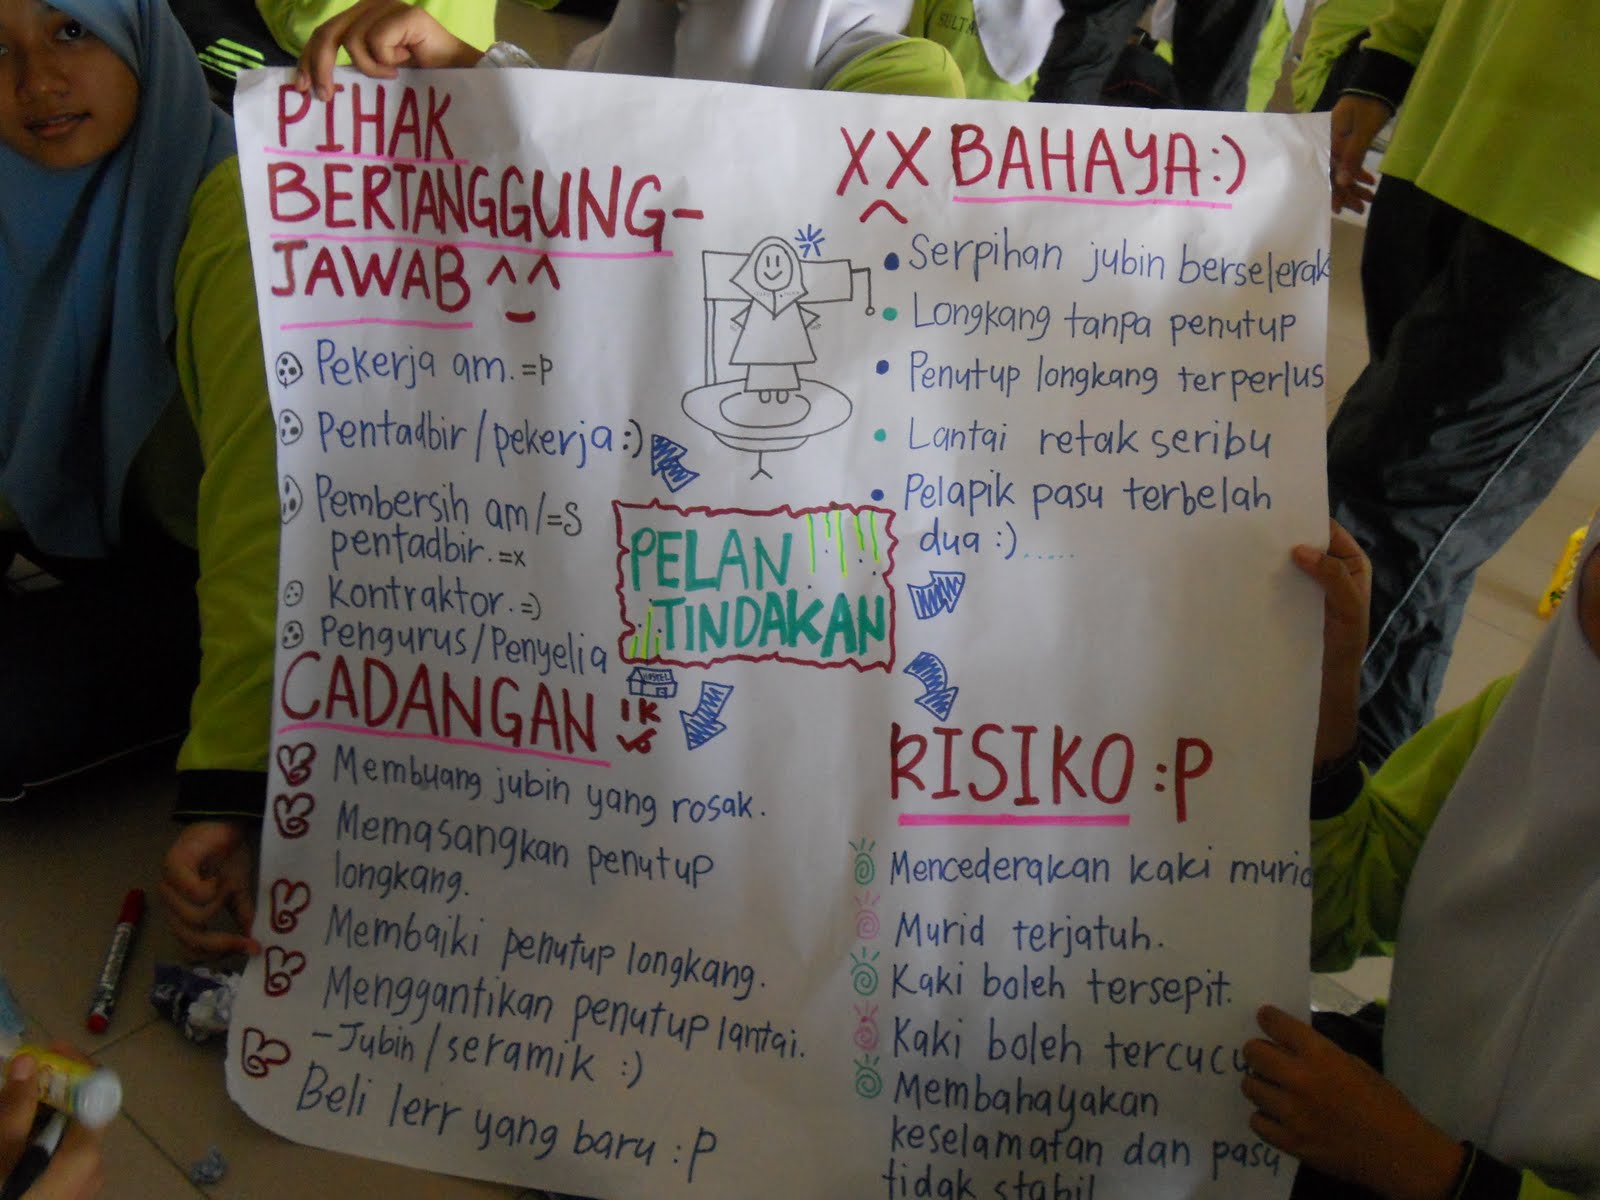 PIHAK
BERTANGGUNG-
JAWAB ^_^
Pekerja am. =P
Pentadbir/pekerja :)
Pembersih am/=S
pentadbir. =x
Kontraktor. =)
Pengurus/Penyelia
XX BAHAYA :)
Serpihan jubin berselerak
Longkang tanpa penutup
Penutup longkang terperlus
Lantai retak seribu
Pelapik pasu terbelah
dua :).....
PELAN
TINDAKAN
HOSTEL
CADANGAN
Membuang jubin yang rosak.
Memasangkan penutup
longkang.
Membaiki penutup longkang.
Menggantikan penutup lantai.
-Jubin/seramik :)
Beli lerr yang baru :P
RISIKO :P
Mencederakan kaki murid
Murid terjatuh.
Kaki boleh tersepit.
Kaki boleh tercucu
Membahayakan
keselamatan dan pasu
tidak stabil
SULTA